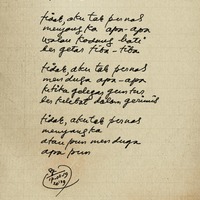 tidak, aku tak pernah
menyangka apa-apa
walau kadang hati
bergetar tiba-tiba
tidak, aku tak pernah
menduga apa-apa
ketika gelegar guntur
berkelebat dalam gerimis
tidak, aku tak pernah
menyangka
atau pun menduga
apa pun